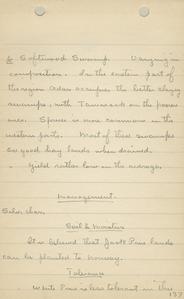 & Softwood Swamp. Varying in
composition. In the eastern part of
the region Cedar occupies the better
swamps, with Tamarack on the poorer
ones. Spruce is more common in the
western parts. Most of these swamps
are good hay lands when drained.
Yield rather low on the average.
Management.
Soil & Moisture
It is believed that Jack Pine lands
can be planted to Norway.
Tolerance
White Pine is less tolerant in this
137